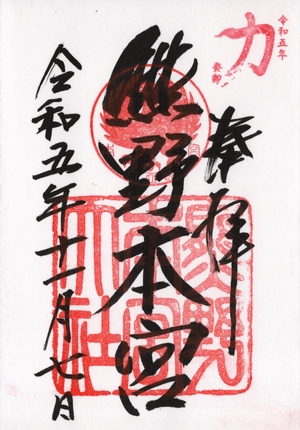 令和五年
力
癸卯
奉拝
熊野本宮
令和五年十一月七日